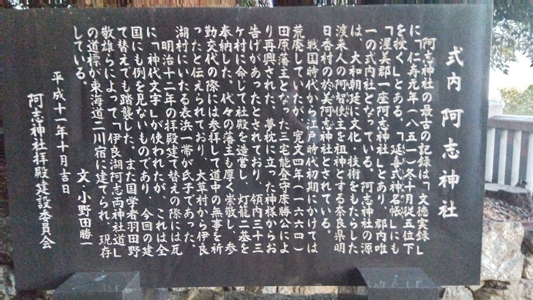 式内 阿志神社
阿志神社の最古の記録は「文徳実録」
に「仁寿元年(八五一)冬十月従五位下
を授く」とある。「延喜式神名帳」にも
「渥美郡一座阿志神社」とあり、郡内唯
一の式内社となっている。阿志神社の源
は、大和朝廷に文化・技術をもたらした
渡来人の阿智使主を祖神とする奈良県明
日香村の於美阿志神社とされている。
戦国時代から江戸時代初期にかけては
荒廃していたが、寛文四年(一六六四)
田原藩主となった三宅能登守康勝公によ
り再興された。夢枕に立った神様からお
告げがあったとされており、領内三十三
ケ村に命じて社殿を造営し、灯籠二基を
奉納した。代々の藩主も厚く崇敬し、参
勤交代の際には参拝して道中の無事を祈
ったと伝えられており、大草村から伊良
湖村にいたる表浜一帯が氏子であった。
明治十二年の拝殿建て替えの際には瓦
に「神代文字」が使われたが、これは全
国にも例を見ないものであり、今回の建
て替えでも踏襲した。また国学者羽田野
敬雄らによって「伊良湖阿志両神社道」
の道標が東海道二川宿に建てられ、現存
している。
文・小野田勝一
平成十一年十月吉日
阿志神社拝殿建設委員会